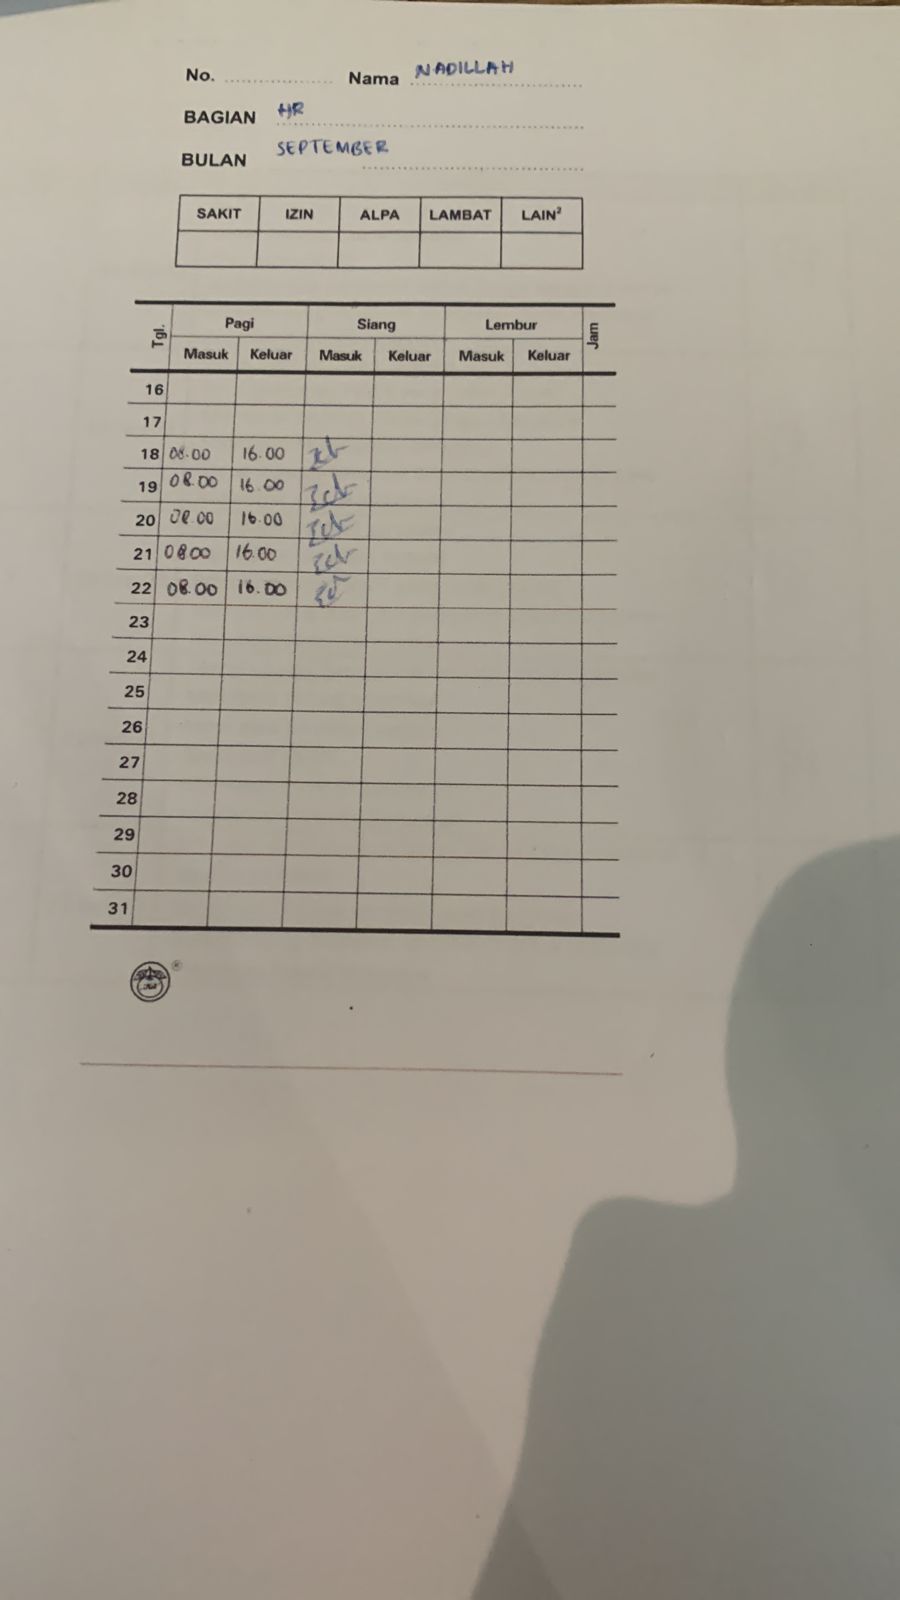 No. .................... Nama NADILLAH
BAGIAN HR
BULAN SEPTEMBER
SAKIT IZIN ALPA LAMBAT LAIN²
Tgl. Pagi Siang Lembur Jam
Masuk Keluar Masuk Keluar Masuk Keluar
16
17
18 08.00 16.00
19 08.00 16.00
20 08.00 16.00
21 0800 16.00
22 08.00 16.00
23
24
25
26
27
28
29
30
31